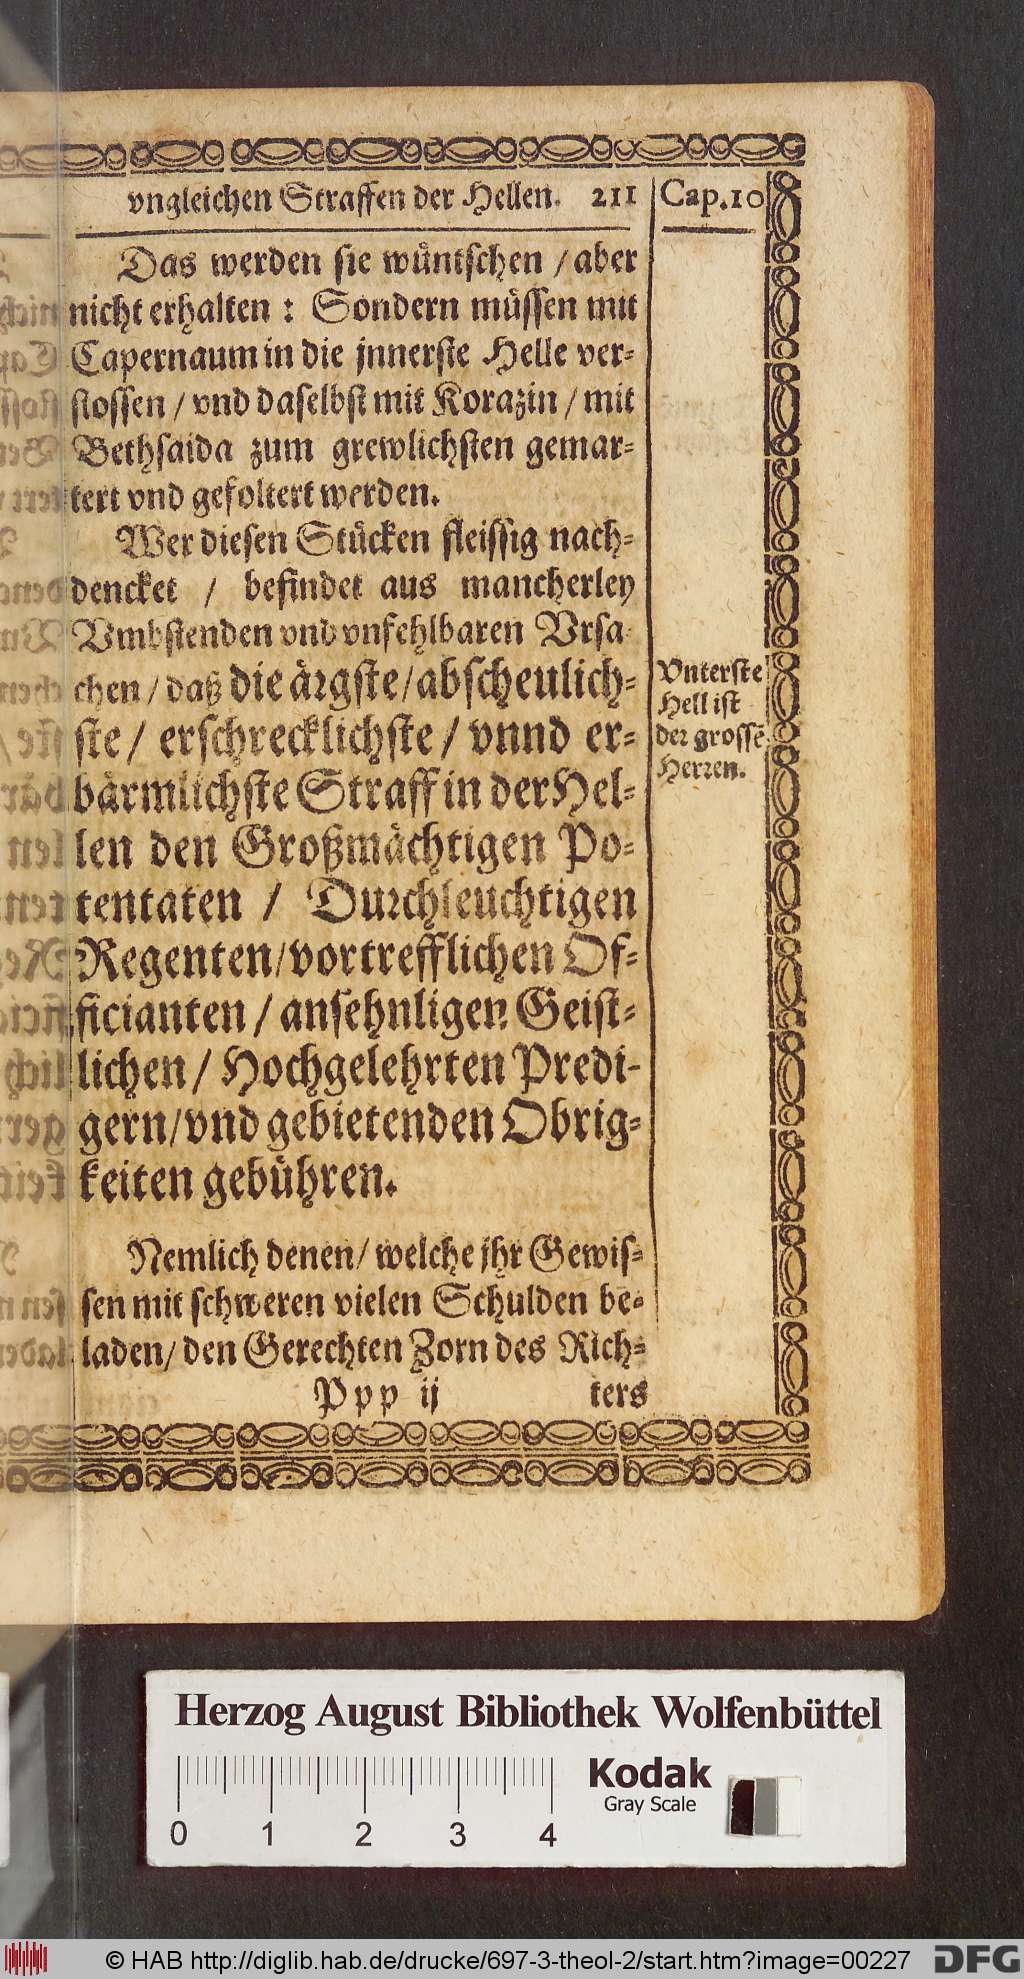 vngleichen Straffen der Hellen. 211
Cap.10
Das werden sie wüntschen / aber
nicht erhalten : Sondern müssen mit
Capernaum in die jnnerste Helle ver-
stossen / vnd daselbst mit Korazin / mit
Bethsaida zum grewlichsten gemar-
tert vnd gefoltert werden.
Wer diesen Stücken fleissig nach-
dencket / befindet aus mancherley
Vmbstenden vnd vnfehlbaren Vrsa-
chen / daß die ärgste/abscheulich-
ste / erschrecklichste / vnnd er-
bärmlichste Straff in der Hel-
len den Großmächtigen Po-
tentaten / Durchleuchtigen
Regenten/vortrefflichen Of-
ficianten / ansehnligen Geist-
lichen / Hochgelehrten Predi-
gern/vnd gebietenden Obrig-
keiten gebühren.
Vnterste
Hell ist
der grossē
Herren.
Nemlich denen/ welche jhr Gewis-
sen mit schweren vielen Schulden be-
laden/ den Gerechten Zorn des Rich-
Ppp ij ters
Herzog August Bibliothek Wolfenbüttel
Kodak
Gray Scale
0 1 2 3 4
© HAB http://diglib.hab.de/drucke/697-3-theol-2/start.htm?image=00227
DFG